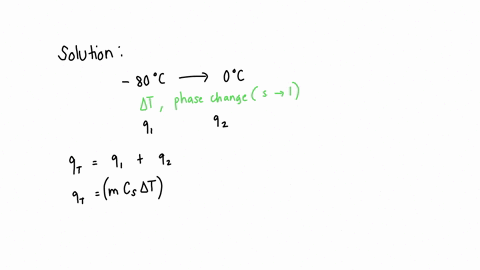 Solution:
- 80°C → 0°C
ΔT, phase change (s → l)
q₁ q₂
q_T = q₁ + q₂
q_T = (m C_s ΔT)